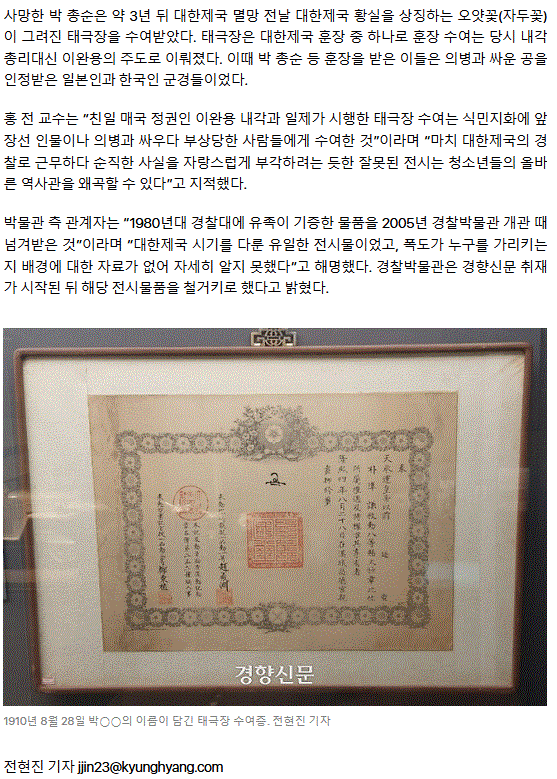 사망한 박 총순은 약 3년 뒤 대한제국 멸망 전날 대한제국 황실을 상징하는 오얏꽃(자두꽃)
이 그려진 태극장을 수여받았다. 태극장은 대한제국 훈장 중 하나로 훈장 수여는 당시 내각
총리대신 이완용의 주도로 이뤄졌다. 이때 박 총순 등 훈장을 받은 이들은 의병과 싸운 공을
인정받은 일본인과 한국인 군경들이었다.
홍 전 교수는 “친일 매국 정권인 이완용 내각과 일제가 시행한 태극장 수여는 식민지화에 앞
장선 인물이나 의병과 싸우다 부상당한 사람들에게 수여한 것”이라며 “마치 대한제국의 경
찰로 근무하다 순직한 사실을 자랑스럽게 부각하려는 듯한 잘못된 전시는 청소년들의 올바
른 역사관을 왜곡할 수 있다”고 지적했다.
박물관 측 관계자는 “1980년대 경찰대에 유족이 기증한 물품을 2005년 경찰박물관 개관 때
넘겨받은 것”이라며 “대한제국 시기를 다룬 유일한 전시물이었고, 폭도가 누구를 가리키는
지 배경에 대한 자료가 없어 자세히 알지 못했다”고 해명했다. 경찰박물관은 경향신문 취재
가 시작된 뒤 해당 전시물품을 철거키로 했다고 밝혔다.
경향신문
1910년 8월 28일 박○○의 이름이 담긴 태극장 수여증. 전현진 기자
전현진 기자 jjin23@kyunghyang.com